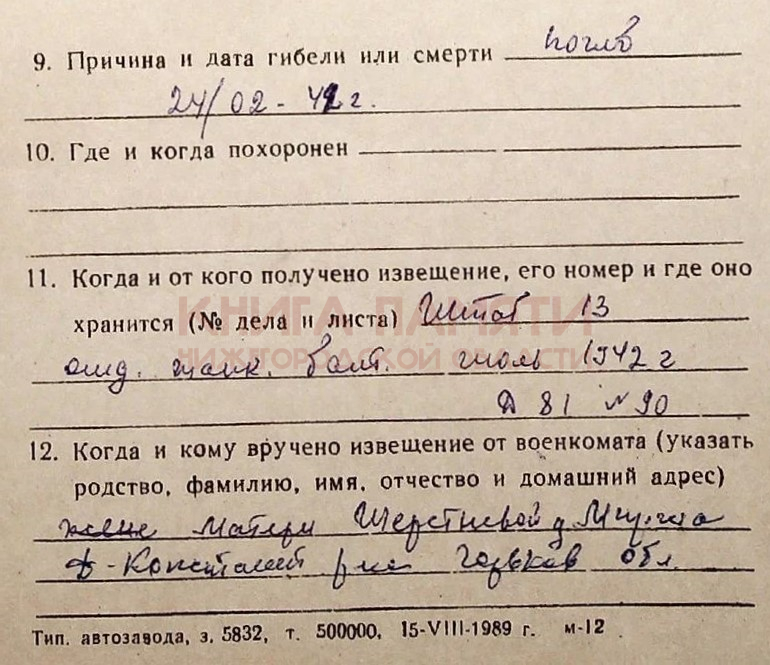 9. Причина и дата гибели или смерти погиб
24/02-42г.
10. Где и когда похоронен
11. Когда и от кого получено извещение, его номер и где оно
КНИГА ПАМЯТИ
хранится (№ дела и листа) Штаб 13
НИЖЕГОРОДСКОЙ ОБЛАСТИ
отд. танк. бат. июль 1942 г
Д 81 № 90
12. Когда и кому вручено извещение от военкомата (указать
родство, фамилию, имя, отчество и домашний адрес)
жене матери Шерстневой д
Д-Констант р-на Горьков обл
Тип. автозавода, з. 5832, т. 500000, 15-VIII-1989 г. м-12